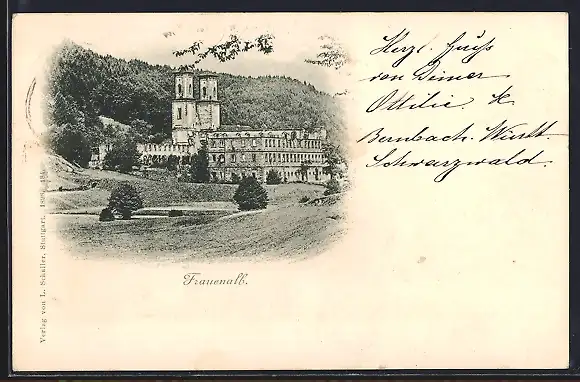 Herzl. Gruß
von Deiner
Ottilie.
Bernbach. Württ.
Schwarzwald.
Frauenalb.
Verlag von L. Schaller, Stuttgart.